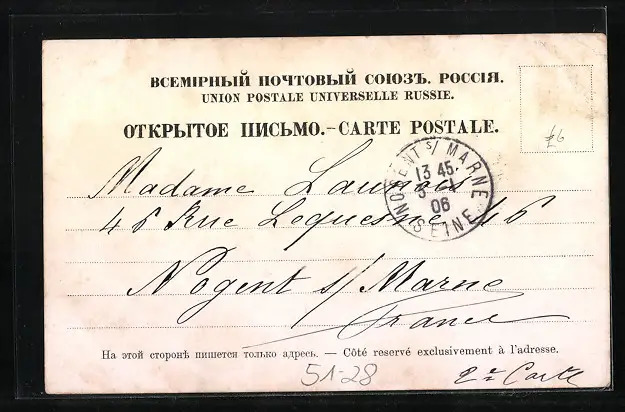 ВСЕМІРНЫЙ ПОЧТОВЫЙ СОЮЗЪ. РОССІЯ.
UNION POSTALE UNIVERSELLE RUSSIE.
ОТКРЫТОЕ ПИСЬМО.-CARTE POSTALE.
NOGENT S/ MARNE
13 45
06
SEINE
Madame
46 Rue Lequesne 46
Nogent s/ Marne
France
На этой сторонѣ пишется только адресъ. — Côté reservé exclusivement à l'adresse.
51-28
2e Carte